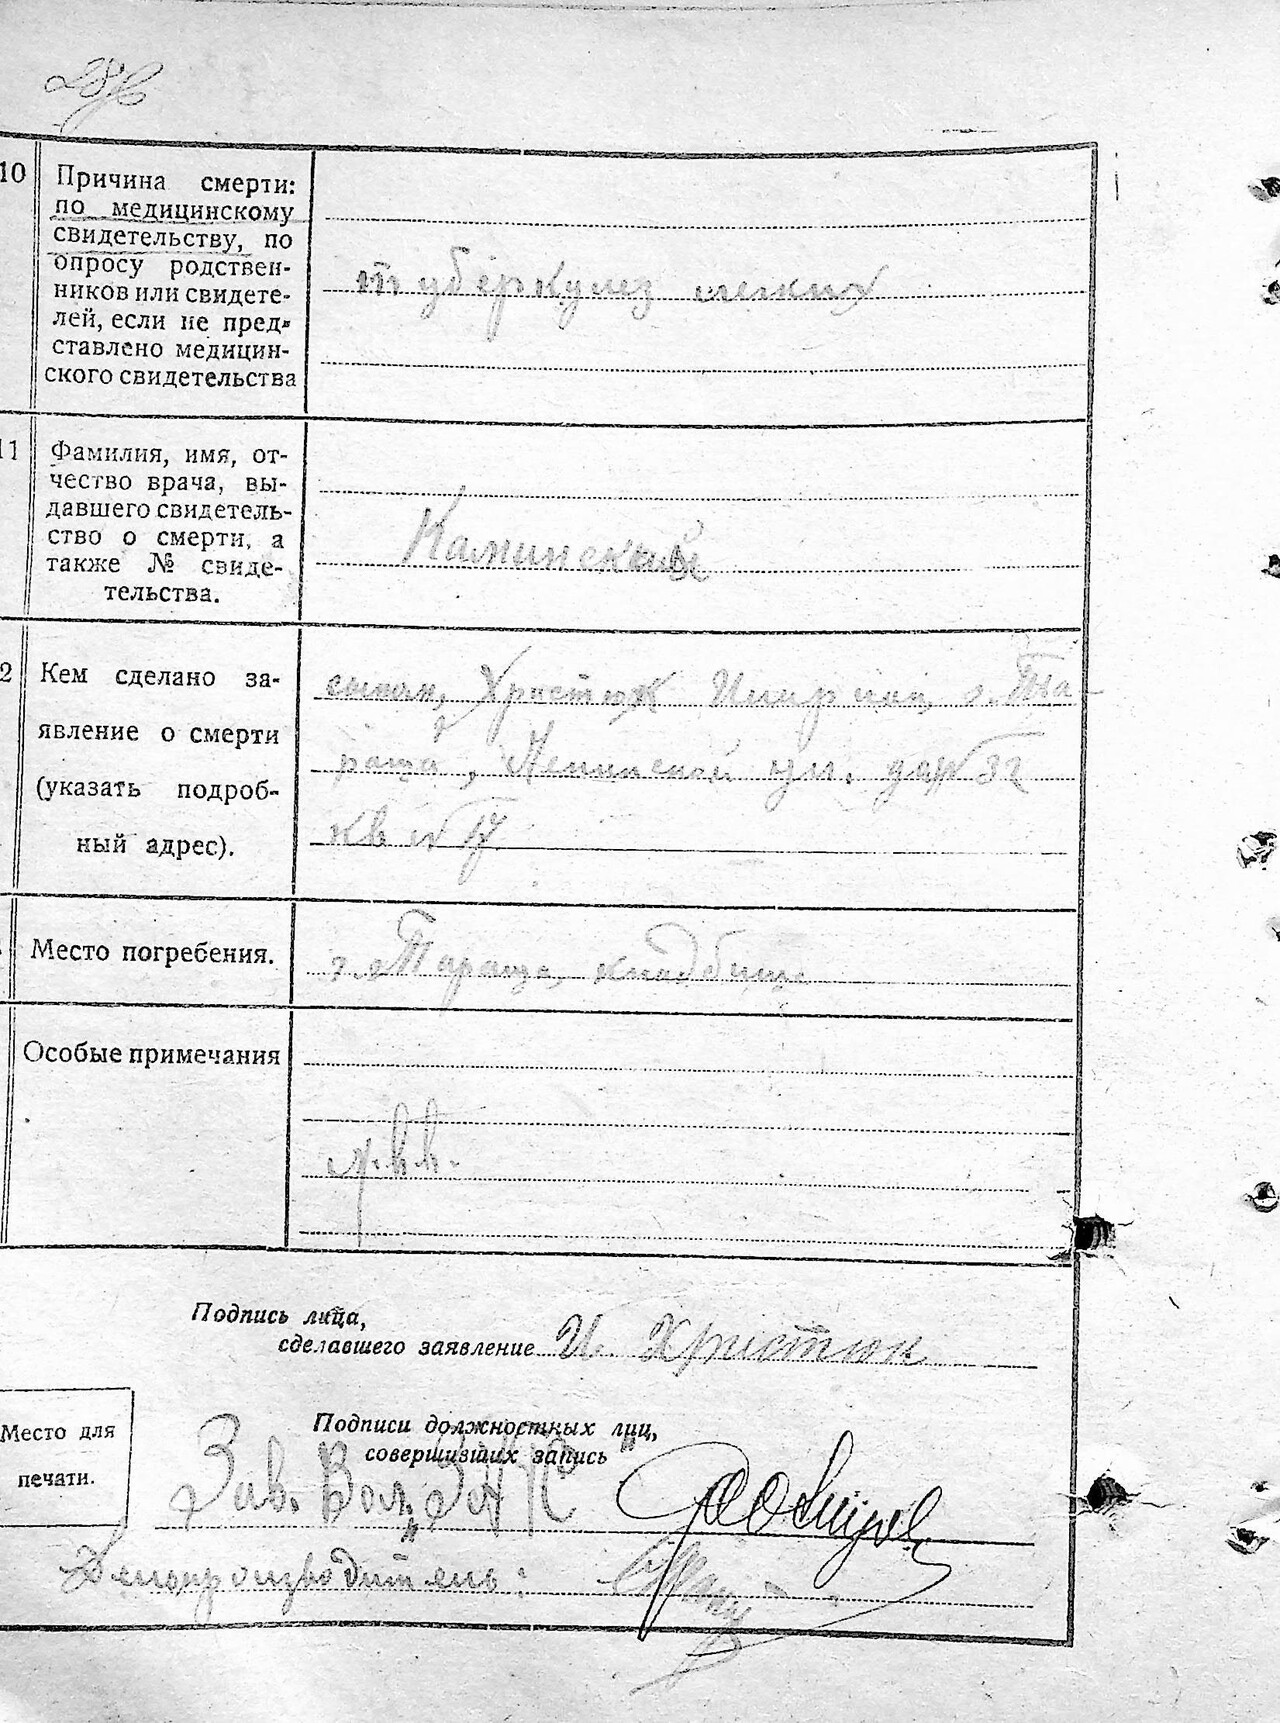 10 Причина смерти:
по медицинскому
свидетельству, по
опросу родствен-
ников или свидете-
лей, если не пред-
ставлено медицин-
ского свидетельства
туберкулез легких
11 Фамилия, имя, от-
чество врача, вы-
давшего свидетель-
ство о смерти, а
также № свиде-
тельства.
Каминский
2 Кем сделано за-
явление о смерти
(указать подроб-
ный адрес).
Христюк г. Та-
раща, Ленинской ул. 32
кв № 17
Место погребения.
г. Тараща, кладбище
Особые примечания
Подпись лица,
сделавшего заявление И. Христюк
Место для
печати.
Подписи должностных лиц,
совершивших запись
Зав. ЗАГС
Делопроизводитель: